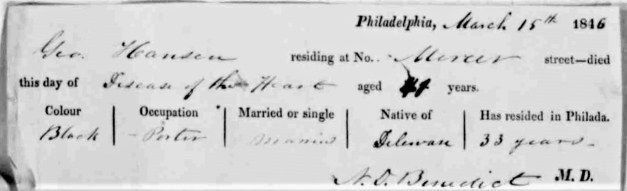 Philadelphia, March 15th 1846
Geo. Hansen residing at No. - Mercer street—died
this day of Disease of the Heart aged years.
Colour Occupation Married or single Native of Has resided in Philada.
Black - Porter Married Delewar 33 years-
N. D. Benedict M. D.